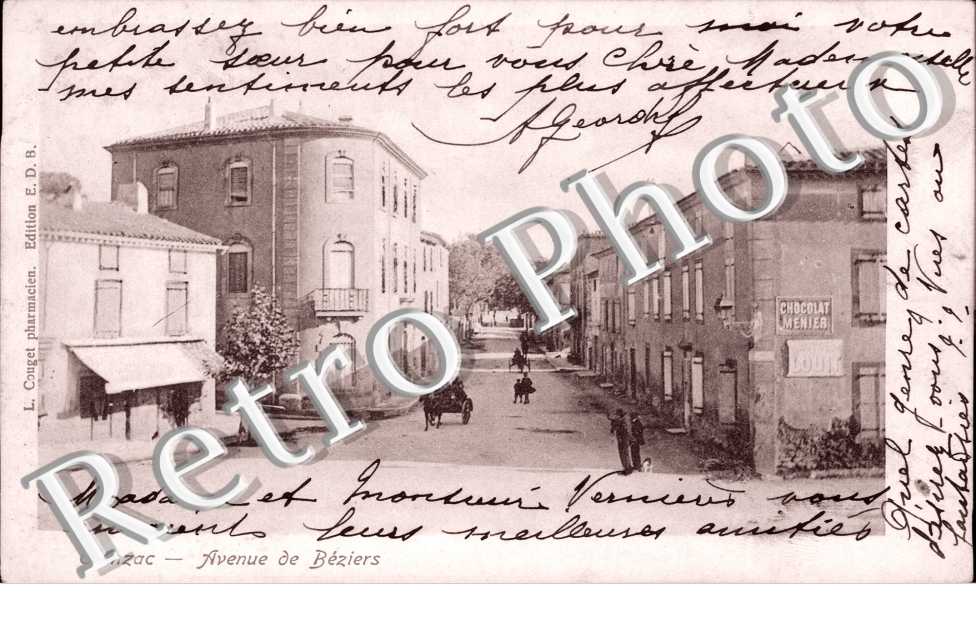 embrassez bien fort pour moi votre
petite sœur pour vous Chère Mademoiselle
mes sentiments les plus affectueux
A Georch
L. Couget pharmacien. Edition E. D. B.
CHOCOLAT
MENIER
Retro Photo
Quel genre de cartes
désirez-vous; Vues ou
fantaisies ?
Madame et Monsieur Vernières vous
envoient leurs meilleures amitiés
Avenue de Béziers